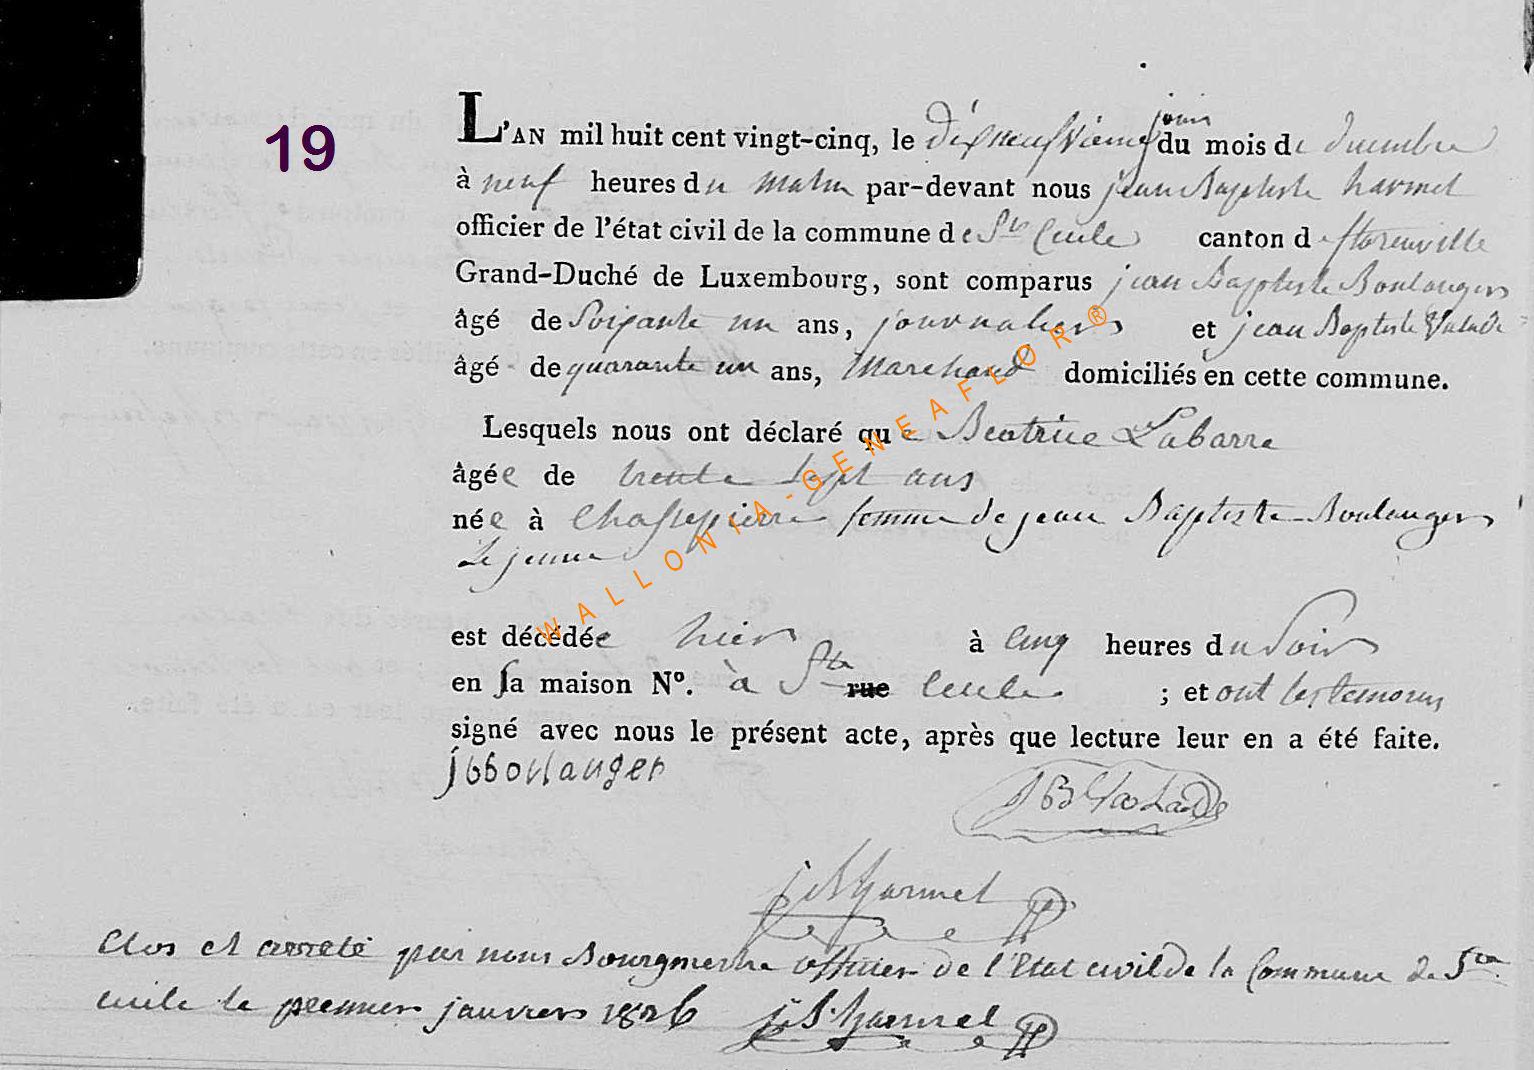 19
L'AN mil huit cent vingt-cinq, le dixneufvieme jour du mois de decembre
à neuf heures du matin par-devant nous jean Baptiste harmel
officier de l'état civil de la commune de Ste Cecile canton de florenville
Grand-Duché de Luxembourg, sont comparus jean Baptiste Boulanger
âgé de Soixante un ans, journalier et jean Baptiste
âgé de quarante un ans, Marchand domiciliés en cette commune.
Lesquels nous ont déclaré que Beatrice Labarre
âgée de trente sept ans
née à Chassepierre femme de jean Baptiste Boulanger
Le jeune
est décédée hier à cinq heures du Soir
en sa maison N°. à Ste rue Cecile ; et ont les temoins
signé avec nous le présent acte, après que lecture leur en a été faite.
jbboulanger
JB
j B harmel
Clos et arreté par nous Bourgmestre officier de l'Etat civil de la Commune de Ste
cecile le premier janvier 1826 j B harmel
WALLONIA-GENEAFLOR®